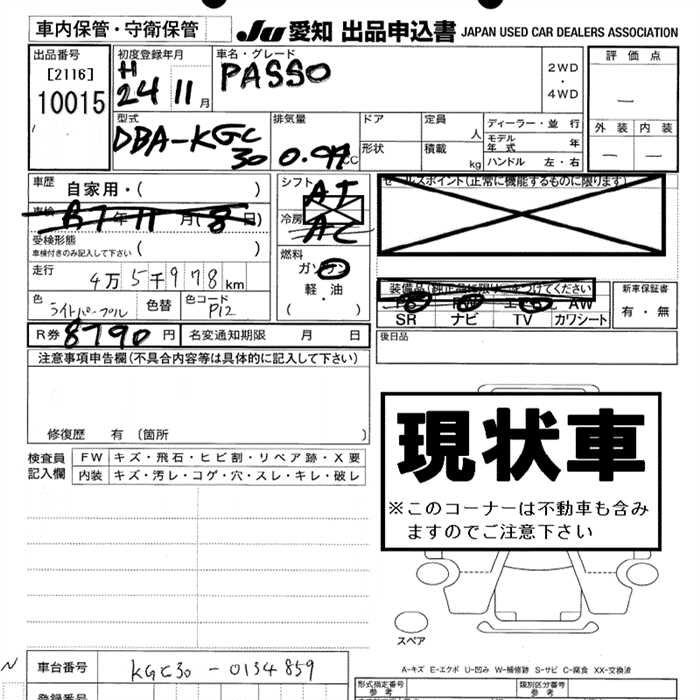 車内保管・守衛保管
JU 愛知 出品申込書 JAPAN USED CAR DEALERS ASSOCIATION
出品番号
[2116]
10015
初度登録年月
H
24 11 月
車名・グレード
PASSO
2WD
・
4WD
評価点
外装 内装
型式
DBA-KGC
30
排気量
0.99 CC
ドア
形状
定員
人
積載
kg
ディーラー・並行
モデル
年式 年
ハンドル 左・右
車歴 自家用・( )
車検 R7年11月8日
受検形態
車検付きのみ記入して下さい ( )
走行 4万5千978km
色 ライトパープル 色替 色コード P12
シフト AT
冷房 AC
燃料
ガソリン
軽・油
( )
セールスポイント(正常に機能するものに限ります)
装備品(純正品に限り〇をつけてください
PS PW エアB AW
SR ナビ TV カワシート
新車保証書
有・無
後日品
R券 8790 円 名変通知期限 月 日
注意事項申告欄(不具合内容等は具体的に記入して下さい)
修復歴 有 〔箇所 〕
検査員
記入欄
FW キズ・飛石・ヒビ割・リペア跡・X要
内装 キズ・汚レ・コゲ・穴・スレ・キレ・破レ
現状車
※このコーナーは不動車も含み
ますのでご注意下さい
スペア
A-キズ E-エクボ U-凹み W-補修跡 S-サビ C-腐食 XX-交換済
N
車台番号 KGC30-0134859
登録番号
形式指定番号
参考
類別区分番号
参考